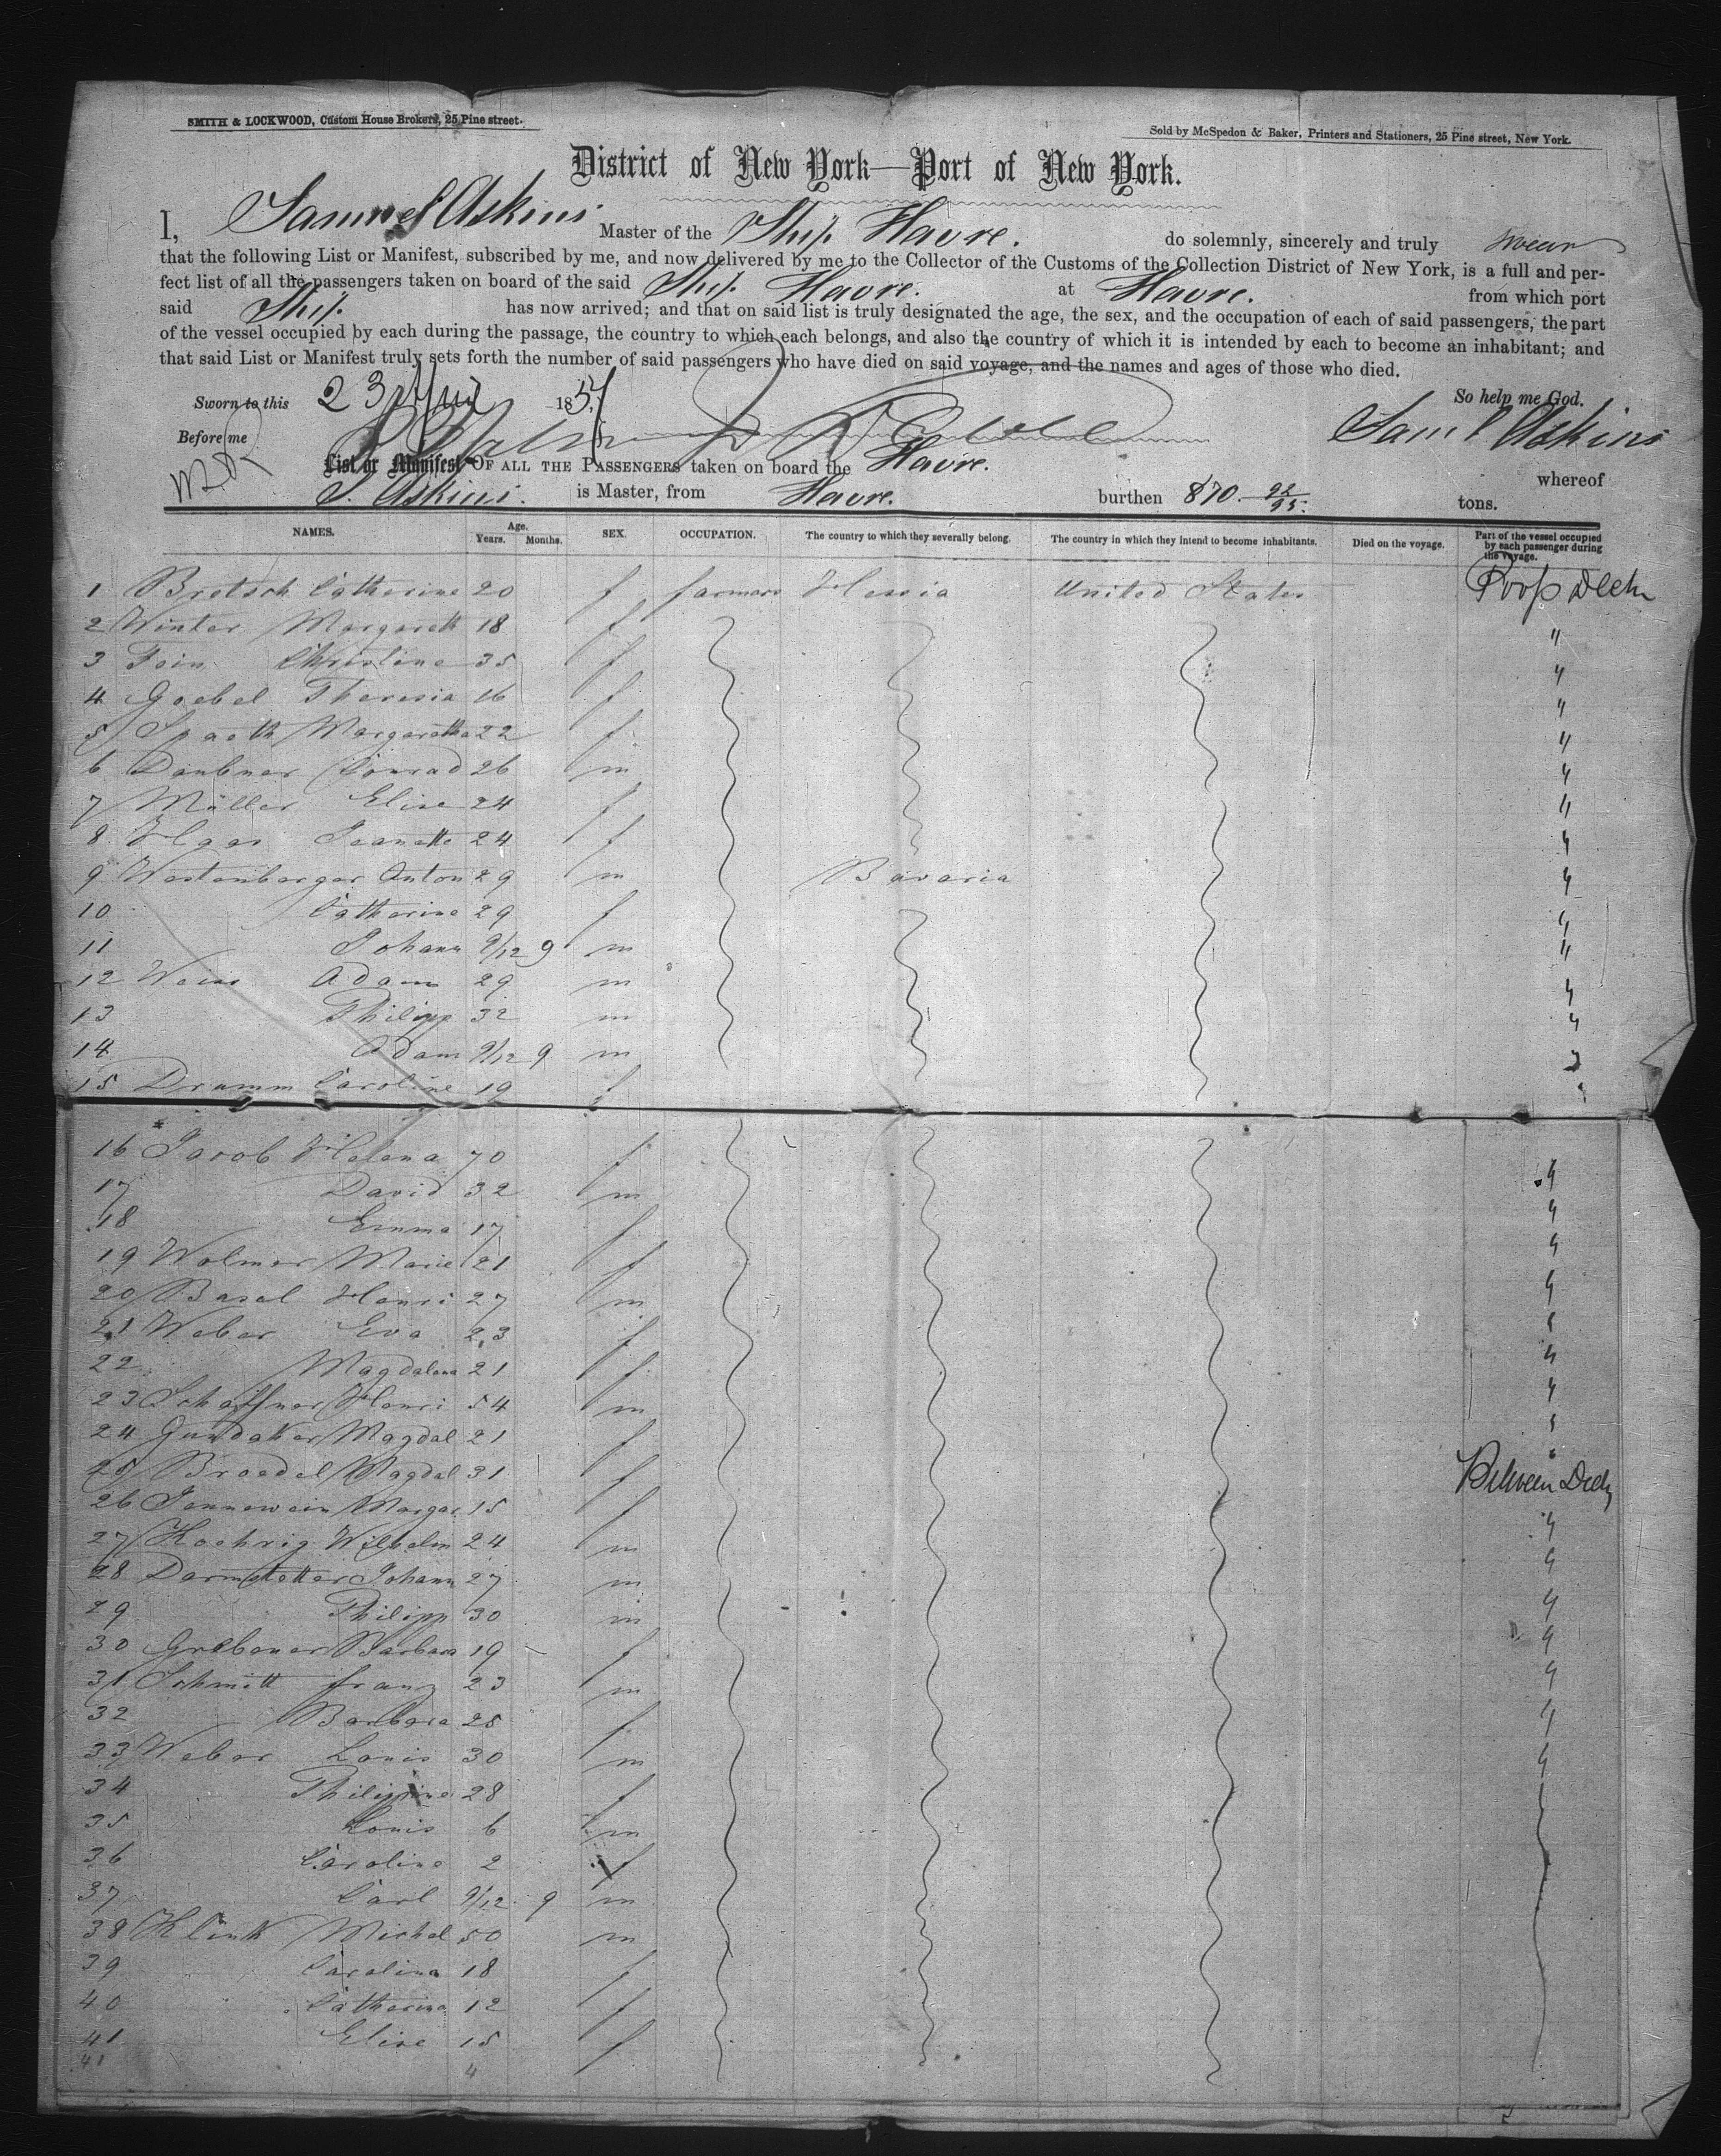 SMITH & LOCKWOOD, Custom House Brokers, 25 Pine street.
Sold by McSpedon & Baker, Printers and Stationers, 25 Pine street, New York.
District of New York—Port of New York.
I, Samuel Askins Master of the Ship Havre. do solemnly, sincerely and truly swear
that the following List or Manifest, subscribed by me, and now delivered by me to the Collector of the Customs of the Collection District of New York, is a full and per-
fect list of all the passengers taken on board of the said Ship Havre. at Havre. from which port
said Ship. has now arrived; and that on said list is truly designated the age, the sex, and the occupation of each of said passengers, the part
of the vessel occupied by each during the passage, the country to which each belongs, and also the country of which it is intended by each to become an inhabitant; and
that said List or Manifest truly sets forth the number of said passengers who have died on said voyage, and the names and ages of those who died.
Sworn to this 23 1857 So help me God.
Before me Saml Askins
List or Manifest OF ALL THE PASSENGERS taken on board the Havre. whereof
S. Askins. is Master, from Havre. burthen 870. 92/95. tons.
NAMES. Age. Years. Months. SEX. OCCUPATION. The country to which they severally belong. The country in which they intend to become inhabitants. Died on the voyage. Part of the vessel occupied by each passenger during the voyage.
1 Bretsch Catherine 20 f farmers Hessia United States Poop Deck
2 Winter Margareth 18 f "
3 Fein Christine 35 f "
4 Goebel Theresia 16 f "
5 Spaeth Margaretha 22 f "
6 Daubner Conrad 26 m "
7 Müller Elise 24 f "
8 Haas Jeanette 24 f "
9 Westenberger Anton 29 m Bavaria "
10 Catherine 29 f "
11 Johann 9/12 9 m "
12 Weiss Adam 29 m "
13 Philipp 32 m "
14 Adam 9/12 9 m "
15 Drumm Caroline 19 f "
16 Jacob Helena 70 f "
17 David 32 m "
18 Emma 17 f "
19 Wolmer Marie 21 f "
20 Basel Henri 27 m "
21 Weber Eva 23 f "
22 Magdalena 21 f "
23 Schaffner Henri 54 m "
24 Gundaker Magdal 21 f "
25 Broedel Magdal 31 f Between Deck
26 Jennewein Margar. 15 f "
27 Koehrig Wilhelm 24 m "
28 Darmstetter Johann 27 m "
29 Philipp 30 m "
30 Grebener Barbara 19 f "
31 Schmitt franz 23 m "
32 Barbara 25 f "
33 Weber Louis 30 m "
34 Philippine 28 f
35 Louis 6 m
36 Caroline 2 f
37 Carl 9/12 9 m
38 Klink Michel 50 m
39 Carolina 18 f
40 Catherina 12 f
41 Elise 15 f
41 4